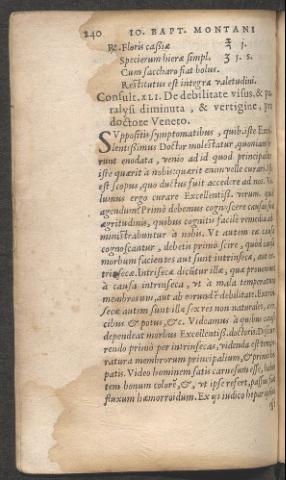 240 IO. BAPT. MONTANI
℞. Floris caßiæ ℥ j.
Specierum hieræ simpl. ʒ j. s.
Cum saccharo fiat bolus.
Restitutus est integræ valetudini.
Consult. XLI. De debilitate visus, & pa
ralysi diminuta, & vertigine, pro
doctore Veneto.
SVppositis symptomatibus, quib. iste Excel
lentissimus Doctor molestatur, quoniam
runt enodata, venio ad id quod principaliter
iste quærit à nobis: quærit enim velle curari.
est scopus, quo ductus fuit accedere ad nos. Vo
lumus ergo curare Excellentiß. virum. quid
agendum? Primò debemus cognoscere causas
ægritudinis, quibus cognitis facilè remedia ad
ministrabuntur à nobis. Vt autem eæ causæ
cognoscantur, debetis primò scire, quòd causæ
morbum facientes aut sunt intrinsecæ, aut ex
trinsecæ. Intrisecæ dicũtur illæ, quæ proueniunt
à causa intrinseca, vt à mala temperatura
membrorum, aut ab eorundẽ debilitate. Extrin
secæ autem sunt illæ sex res non naturales, aer,
cibus & potus, &c. Videamus à quibus causis
dependeat morbus Excellentiß. doctoris. Discur
rendo primò per intrinsecas, videnda est tempe
ratura membrorum principalium, & primò he
patis. Video hominem satis carnosum esse, habẽ
tem bonum colorẽ, &, vt ipse refert, passus fuit
fluxum hæmorroidum. Ex ijs iudico hepar